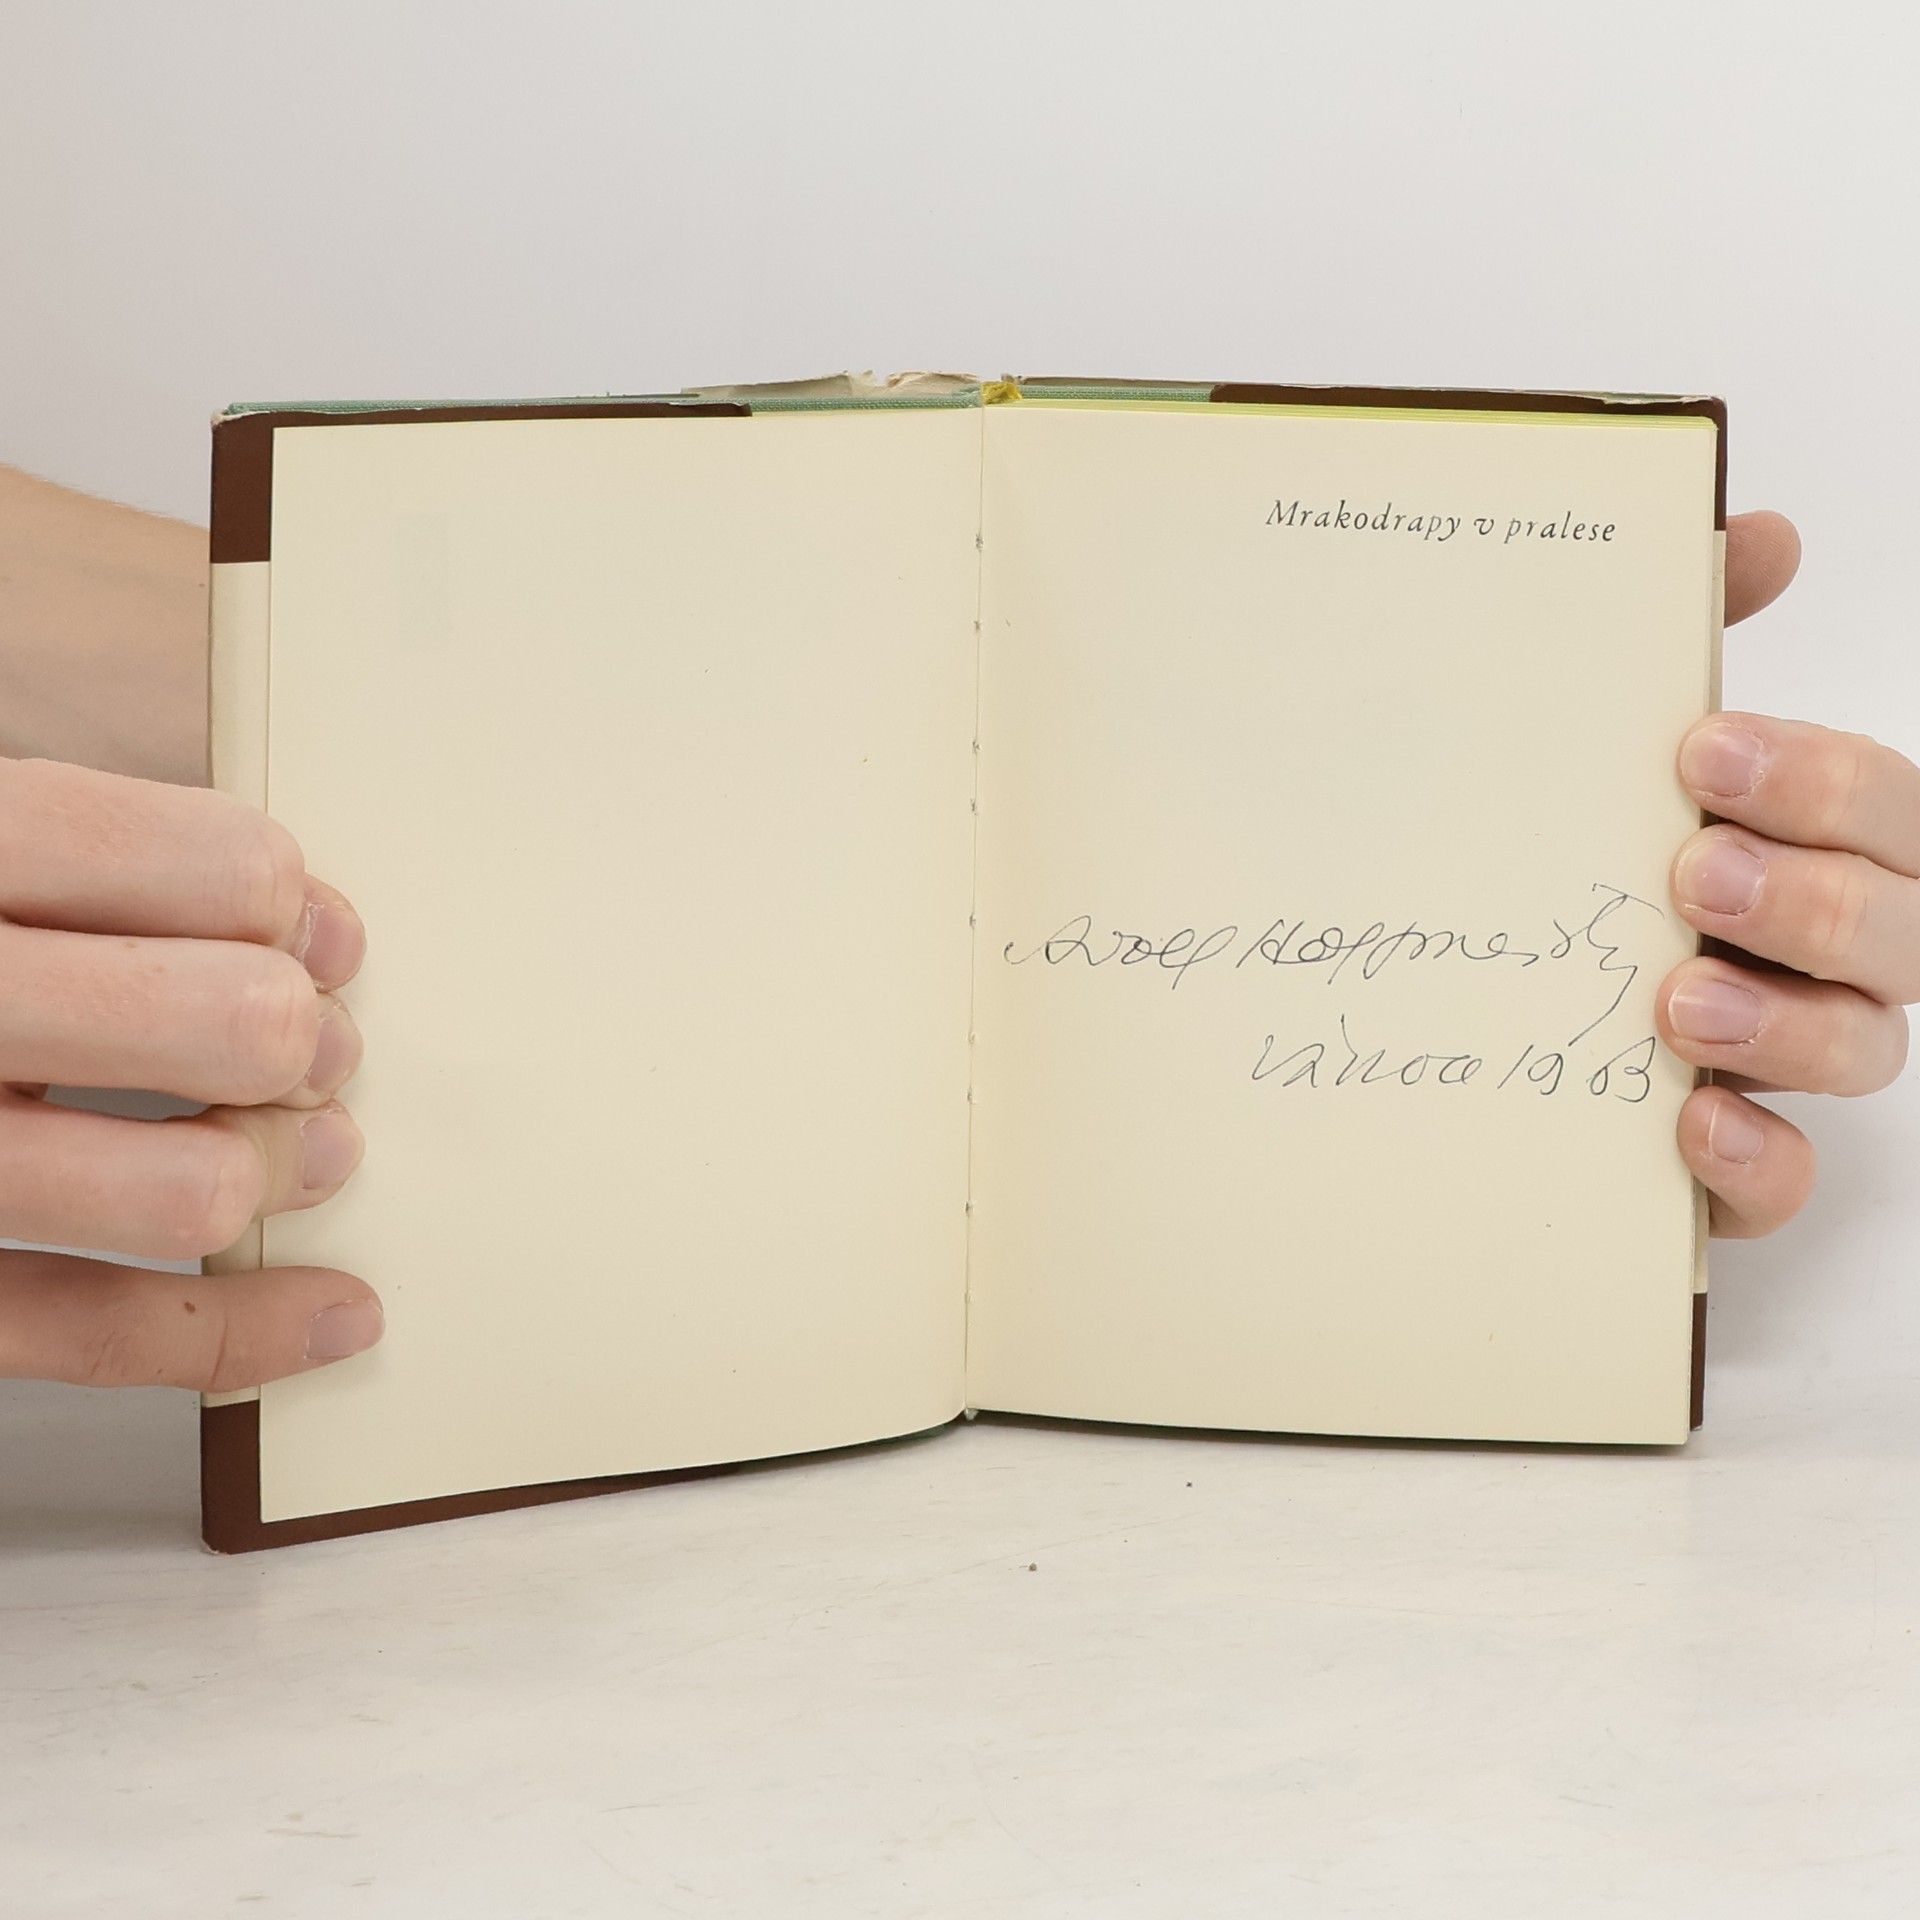 Mrakodrapy v pralese
Adolf Hoffmeister
Vánoce 1963